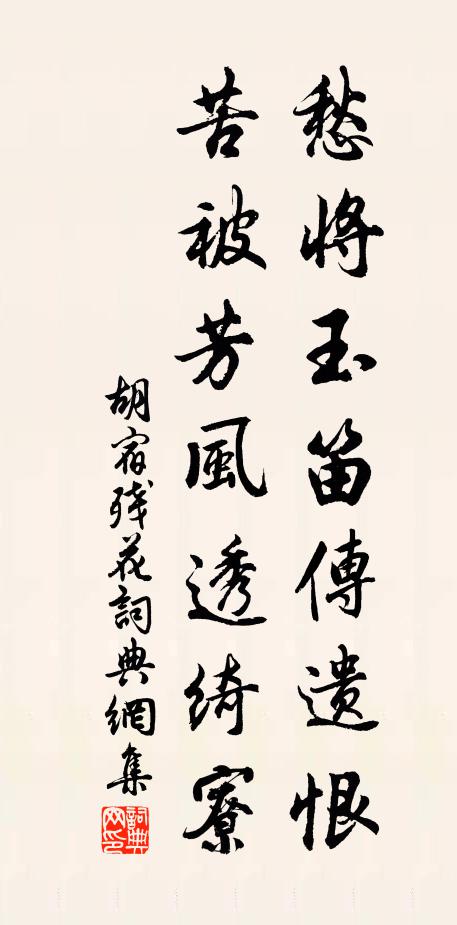 愁將玉笛傳遺恨
苦被芳風透綺寮
胡宿残花詞典網集
詞典网印